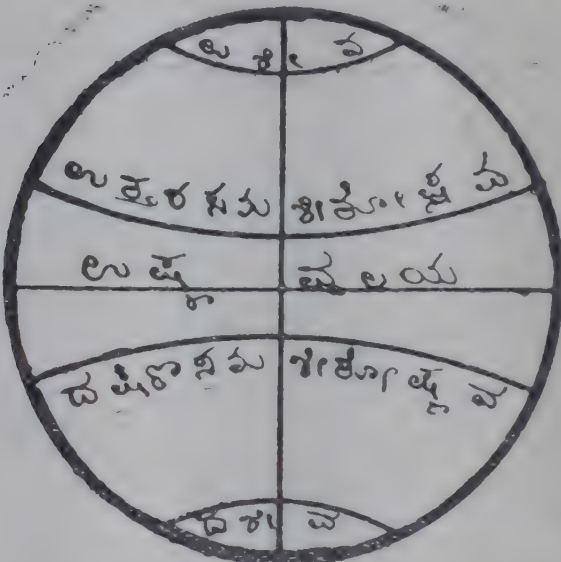 ಉ ಶೀ ವ
ಉತ್ತರ ಸಮ ಶೀತೋಷ್ಣ ವ
ಉಷ್ಣ ವಲಯ
ದಕ್ಷಿಣ ಸಮ ಶೀತೋಷ್ಣ ವ
ದ ಶೀ ವ